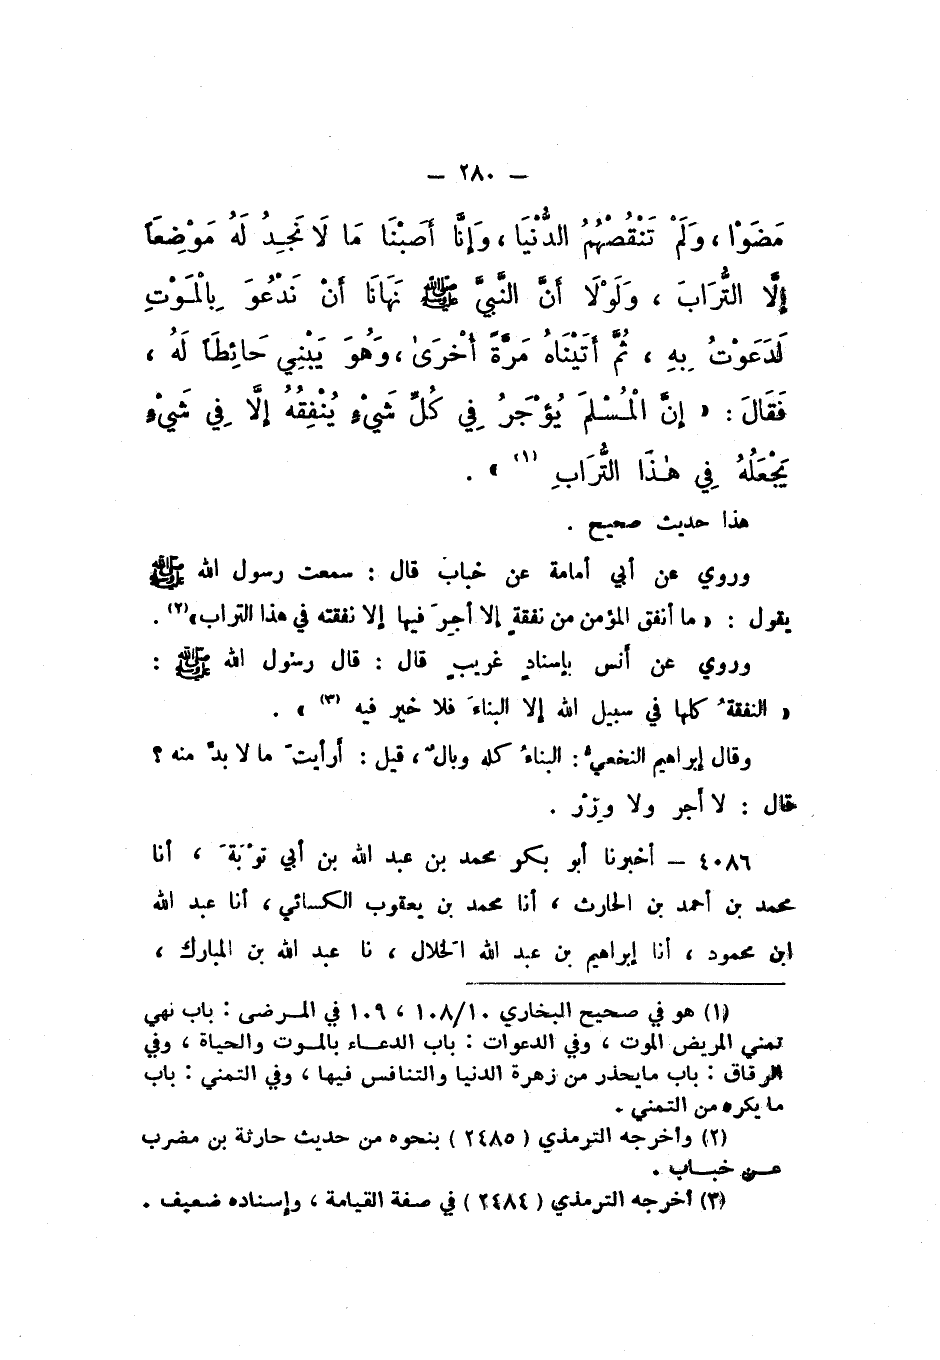 — ٢٨٠ —
مَضَوْا ، وَلَمْ تَنْقُصْهُمُ الدُّنْيَا ، وَإِنَّا أَصَبْنَا مَا لَا نَجِدُ لَهُ مَوْضِعَاً
إِلَّا التُّرَابَ ، وَلَوْلَا أَنَّ النَّبِيَّ ﷺ نَهَانَا أَنْ نَدْعُوَ بِالْمَوْتِ
لَدَعَوْتُ بِهِ ، ثُمَّ أَتَيْنَاهُ مَرَّةً أُخْرَىٰ ، وَهُوَ يَبْنِي حَائِطَاً لَهُ ،
فَقَالَ : « إِنَّ الْمُسْلِمَ يُؤْجَرُ فِي كُلِّ شَيْءٍ يُنْفِقُهُ إِلَّا فِي شَيْءٍ
يَجْعَلُهُ فِي هٰذَا التُّرَابِ (١) » .
هذا حديث صحيح .
وروي عن أبي أمامة عن خبابَ قال : سمعت رسول الله ﷺ
يقول : « ما أنفق المؤمن من نفقةٍ إلا أجِرَ فيها إلا نفقته في هذا التراب»(٢) .
وروي عن أنس بإسنادٍ غريبٍ قال : قال رسُول الله ﷺ :
« النفقةُ كلها في سبيل الله إلا البناءَ فلا خير فيه (٣) » .
وقال إبراهيم النخعيُّ : البناءُ كله وبالٌ ، قيل : أرأيتَ ما لا بدَّ منه ؟
قال : لا أجر ولا وِزْر .
٤٠٨٦ — أخبرنا أبو بكر محمد بن عبد الله بن أبي توْبَةَ ، أنا
محمد بن أحمد بن الحارث ، أنا محمد بن يعقوب الكسائي ، أنا عبد الله
ابن محمود ، أنا إبراهيم بن عبد الله الخلال ، نا عبد الله بن المبارك ،
(١) هو في صحيح البخاري ١٠٨/١٠ ، ١٠٩ في المرضى : باب نهي
تمني المريض الموت ، وفي الدعوات : باب الدعاء بالموت والحياة ، وفي
الرقاق : باب مايحذر من زهرة الدنيا والتنافس فيها ، وفي التمني : باب
ما يكره من التمني .
(٢) وأخرجه الترمذي ( ٢٤٨٥ ) بنحوه من حديث حارثة بن مضرب
عن خباب .
(٣) أخرجه الترمذي ( ٢٤٨٤ ) في صفة القيامة ، وإسناده ضعيف .